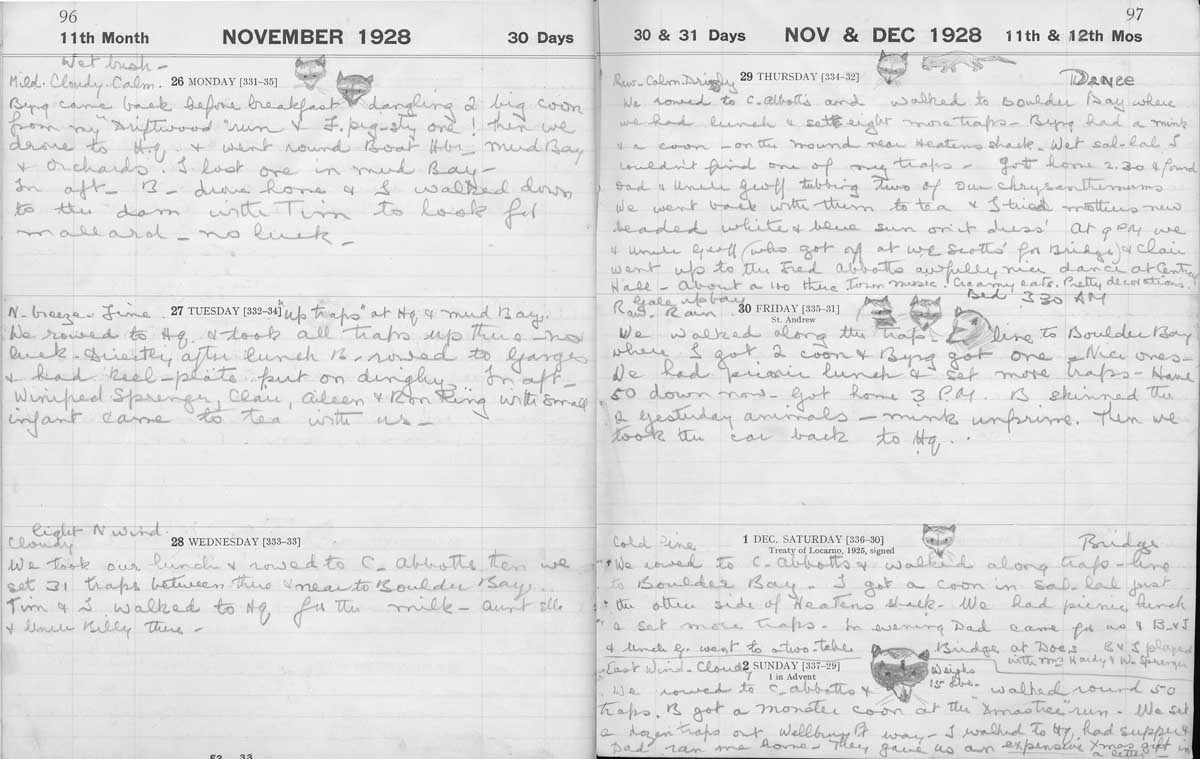 96
11th Month NOVEMBER 1928 30 Days
Wet bush -
Mild. Cloudy. Calm. 26 MONDAY [331-35]
Byng came back before breakfast dangling 2 big coon
from my "Driftwood" run & F. pig-sty one! Then we
drove to Hq. & went round Boat Hbr, Mud Bay
& Orchards. I lost one in Mud Bay -
In aft - B - drove home & I walked down
to the dam with Tim to look for
mallard - no luck -
N - breeze - Fine 27 TUESDAY [332-34] "up traps" at Hq & Mud Bay.
We rowed to Hq. & took all traps up there - no
luck - Directly after lunch B - rowed to
& had keel-plate put on dinghy. In aft -
Winifred Springer, Clair, Aileen & Ron King with small
infant came to tea with us -
light N wind.
Cloudy 28 WEDNESDAY [333-33]
We took our lunch & rowed to C. Abbotts then we
set 31 traps between there & near to Boulder Bay.
Tim & I walked to Hq for the milk - Aunt
& Uncle Billy there -
97
30 & 31 Days NOV & DEC 1928 11th & 12th Mos
Raw - Calm. Drizzly 29 THURSDAY [334-32] Dance
We rowed to C. Abbotts and walked to Boulder Bay where
we had lunch & set eight more traps - Byng had a mink
& a coon - on the mound near Heatens shack. Wet sal-lal I
couldn't find one of my traps - got home 2.30 & found
Dad & Uncle Geoff tubbing two of our chrysanthemums
We went back with them to tea & I tried mothers new
beaded white & blue sun on it dress! At 9 PM we
& Uncle Geoff (who got off at We Scotts for Bridge) & Clair
went up to the Fred Abbotts awfully nice dance at Central
Hall - About a 140 there town music. Creamy eats. Pretty decorations.
Bed 3.30 AM
Gale up bay
Raw - Rain 30 FRIDAY [335-31]
St. Andrew
We walked along the trap - line to Boulder Bay
where I got 2 coon & Byng got one - Nice ones -
We had picnic lunch & set more traps - Have
50 down now - Got home 3 P.M. B skinned the
2 yesterday animals - mink unprime. Then we
took the car back to Hq..
Cold Fine 1 DEC. SATURDAY [336-30] Bridge
Treaty of Locarno, 1925, signed
We rowed to C. Abbotts & walked along trap-line
to Boulder Bay - I got a coon in sal-lal just
the other side of Heatens shack - We had picnic lunch
& set more traps - In evening Dad came for us & B & I
& Uncle G. went to a two-table Bridge at Does B & I played
with Mrs Hardy & Springer
East Wind - Cloudy 2 SUNDAY [337-29] Weighs
1 in Advent 15 lbs -
We rowed to C. Abbotts & walked round 50
traps. B got a monster coon at the "Xmas tree" run - We set
a dozen traps out Wellbury Pt way - I walked to Hq, had supper &
Dad ran me home - They gave us an expensive Xmas gift in
a letter -